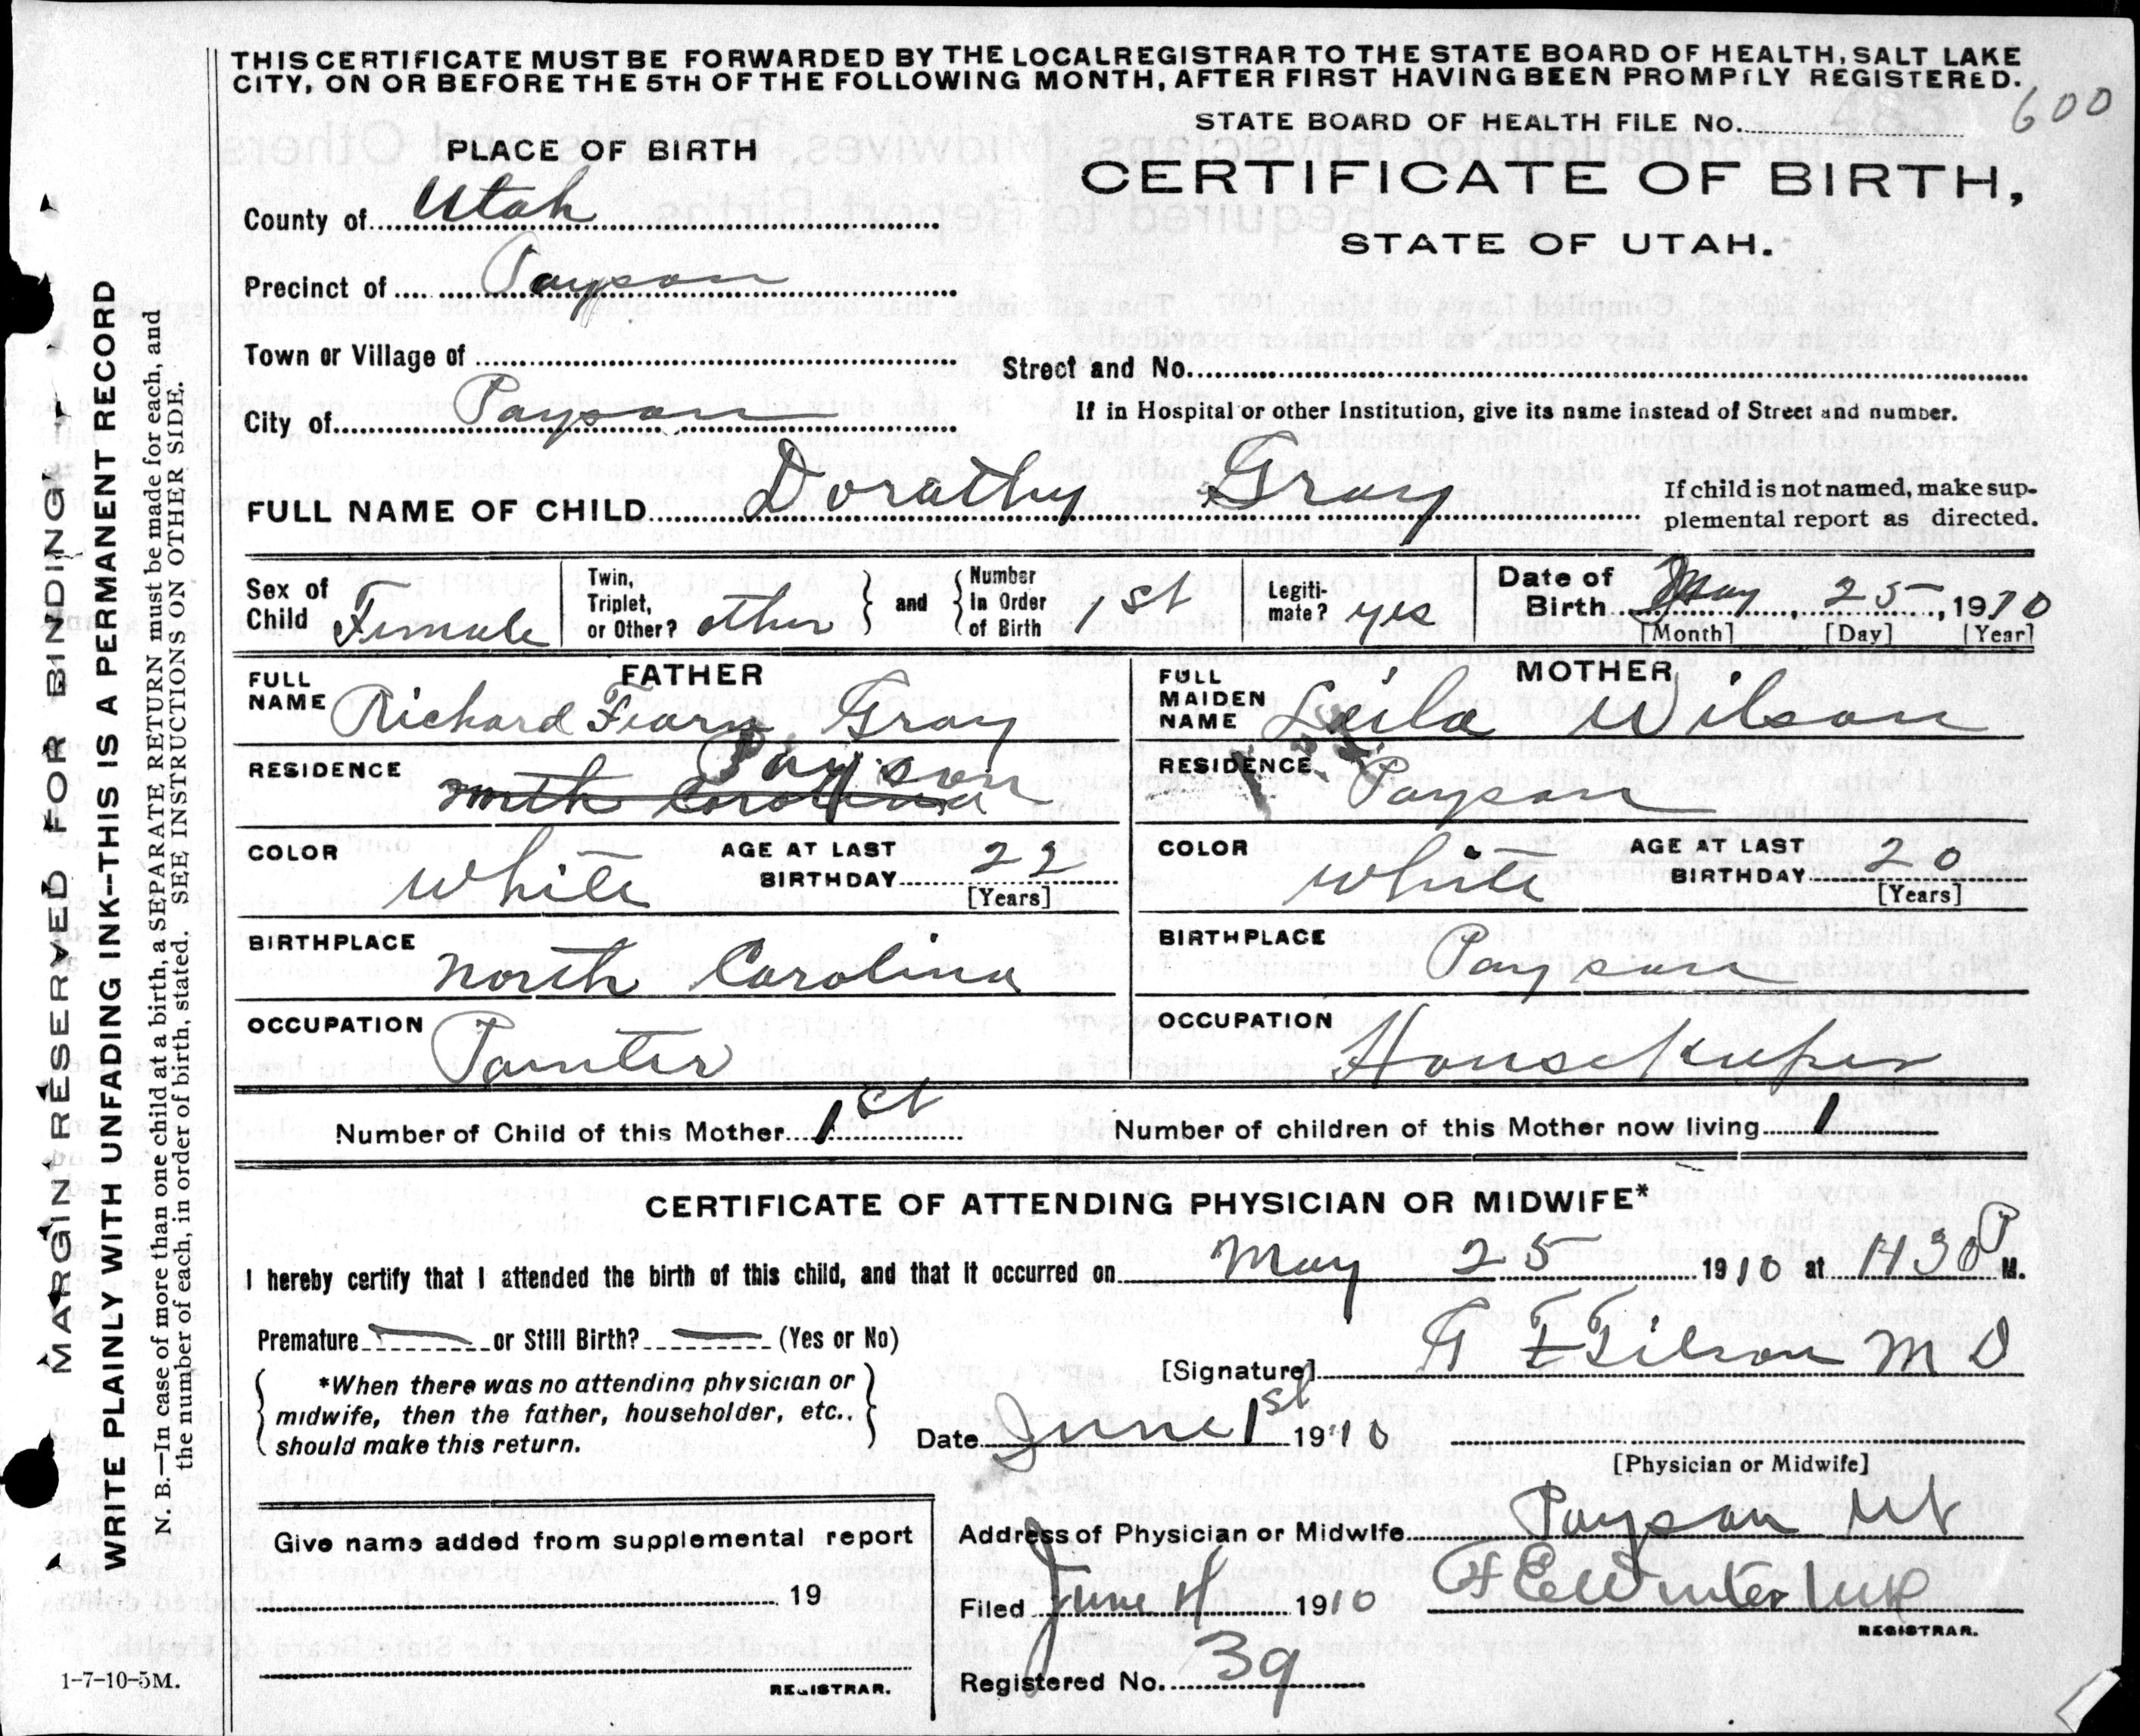 THIS CERTIFICATE MUST BE FORWARDED BY THE LOCAL REGISTRAR TO THE STATE BOARD OF HEALTH, SALT LAKE
CITY, ON OR BEFORE THE 5TH OF THE FOLLOWING MONTH, AFTER FIRST HAVING BEEN PROMPTLY REGISTERED.
STATE BOARD OF HEALTH FILE No. 600
PLACE OF BIRTH
CERTIFICATE OF BIRTH,
STATE OF UTAH.
County of Utah
Precinct of Payson
Town or Village of
Street and No.
City of Payson
If in Hospital or other Institution, give its name instead of Street and number.
FULL NAME OF CHILD Dorathy Gray
If child is not named, make sup-
plemental report as directed.
Sex of Child Female
Twin, Triplet, or Other? other
and Number In Order of Birth 1st
Legiti-mate? yes
Date of Birth May 25, 1910
[Month] [Day] [Year]
FATHER
FULL NAME Richard Fearn Gray
RESIDENCE North Carolina Payson
COLOR White
AGE AT LAST BIRTHDAY 22
[Years]
BIRTHPLACE North Carolina
OCCUPATION Painter
MOTHER
FULL MAIDEN NAME Leila Wilson
RESIDENCE Payson
COLOR White
AGE AT LAST BIRTHDAY 20
[Years]
BIRTHPLACE Payson
OCCUPATION Housekeeper
Number of Child of this Mother 1st
Number of children of this Mother now living 1
CERTIFICATE OF ATTENDING PHYSICIAN OR MIDWIFE*
I hereby certify that I attended the birth of this child, and that it occurred on May 25 1910 at 430 P M.
Premature or Still Birth? (Yes or No)
*When there was no attending physician or
midwife, then the father, householder, etc.,
should make this return.
[Signature] M D
Date June 1st 1910
[Physician or Midwife]
Give name added from supplemental report
19
REGISTRAR.
Address of Physician or Midwife Payson Ut
Filed June 4 1910
REGISTRAR.
Registered No. 39
1-7-10-5M.
MARGIN RESERVED FOR BINDING
WRITE PLAINLY WITH UNFADING INK--THIS IS A PERMANENT RECORD
N. B.—In case of more than one child at a birth, a SEPARATE RETURN must be made for each, and
the number of each, in order of birth, stated. SEE INSTRUCTIONS ON OTHER SIDE.